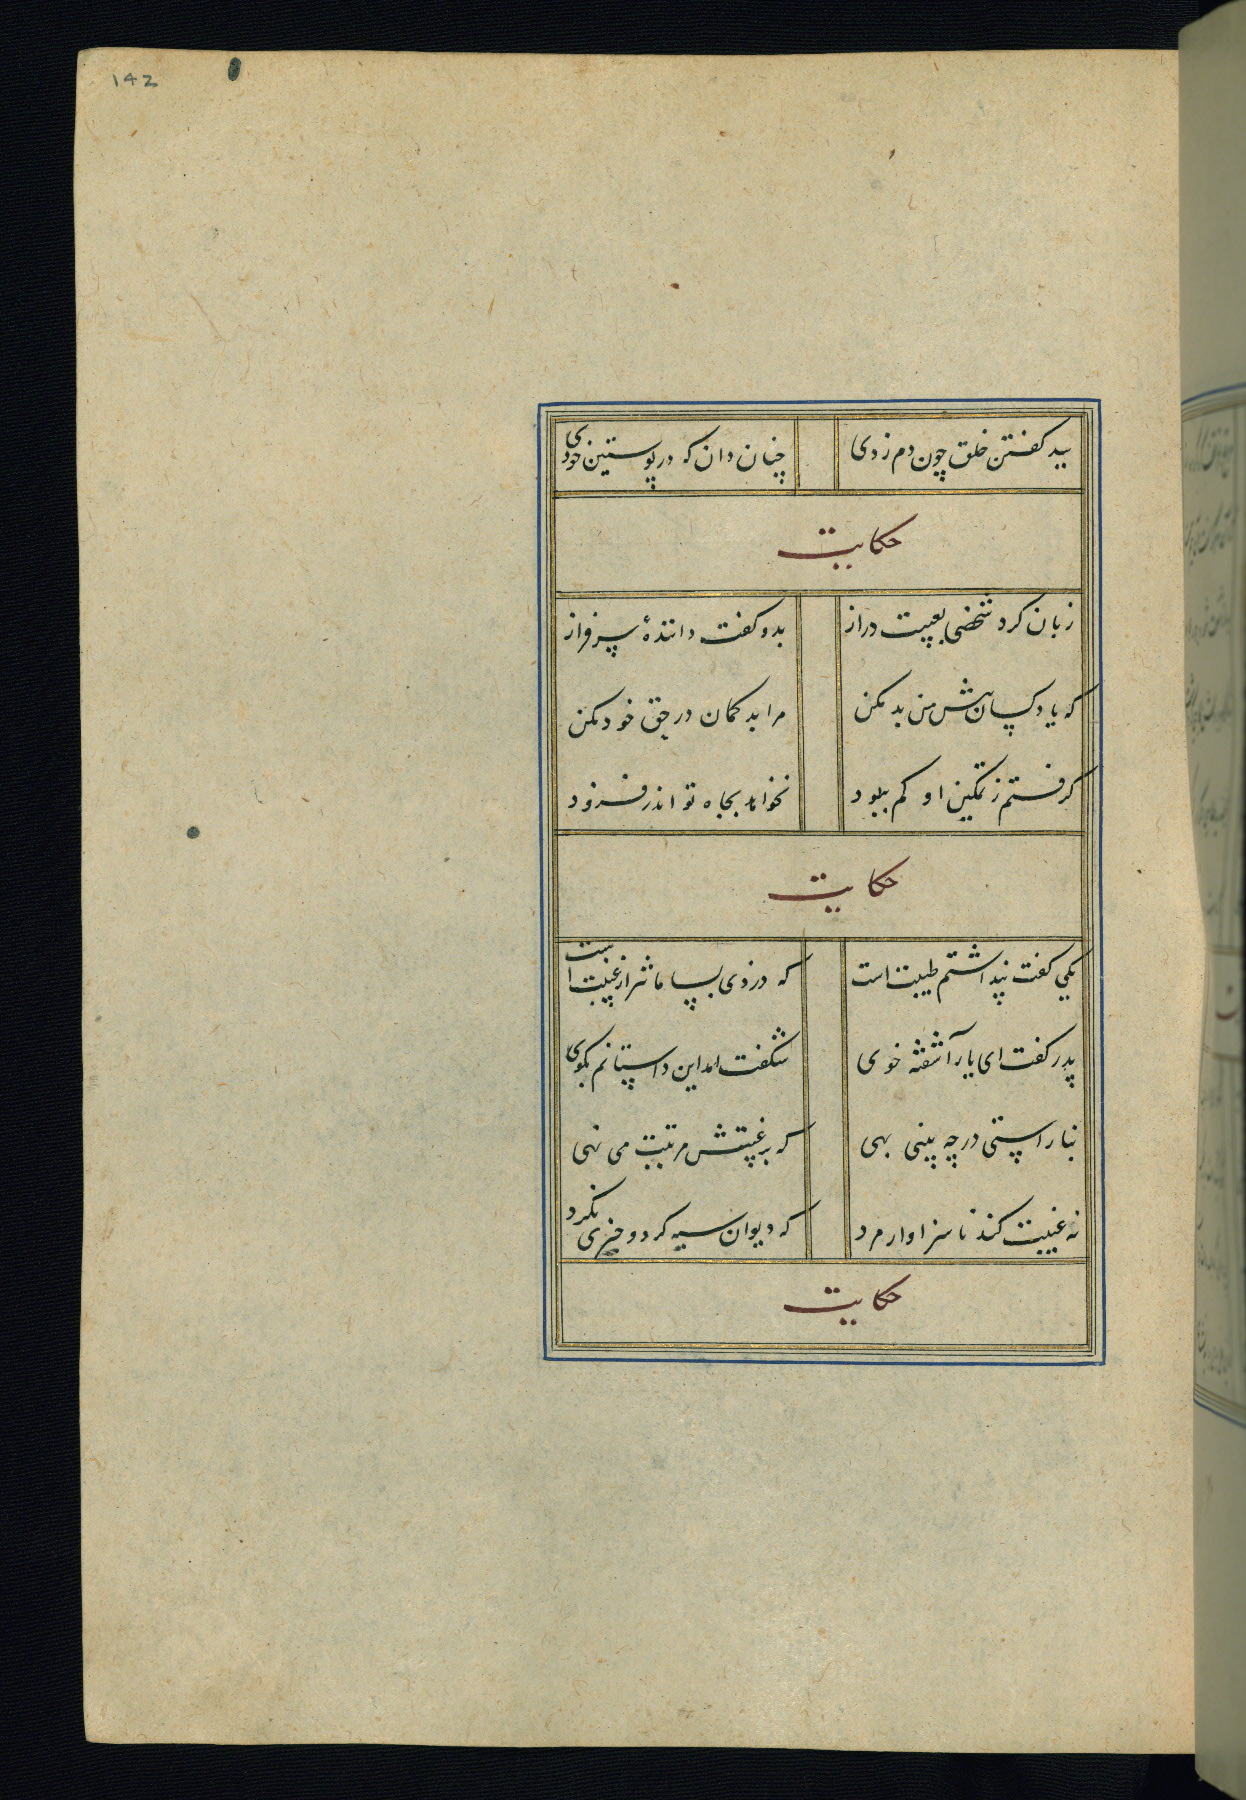 142
ببد گفتن خلق چون دم زدی چنان دان که در پوستین خودی
حکایت
زبان کرد شخصی بغیبت دراز بدو گفت دانندۀ سرفراز
که یاد کسان پیش من بد مکن مرا بد گمان در حق خود مکن
گرفتم ز تمکین او کم ببود نخواهد بجاه تو اندر فزود
حکایت
یکی گفت پنداشتم طیبت است که دزدی بسامانتر از غیبت است
بدر گفت ای یار آشفته خوی شگفت امد این داستانم بگوی
بناراستی در چه بینی بهی که بر غیبتش مرتبت می نهی
نه غیبت کند ناسزاوار مرد که دیوان سیه کرد و چیزی نکرد
حکایت